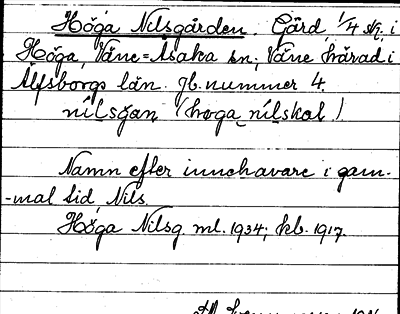 Höga Nilsgården. Gård, 1/4 skr. i
Höga, Väne=Åsaka sn; Väne härad i
Älfsborgs län. Jb. nummer 4.
nílsgan (hoga nílskal)
Namn efter innehavare i gam-
-mal tid, Nils.
Höga Nilsg. ml. 1934; kb. 1917.